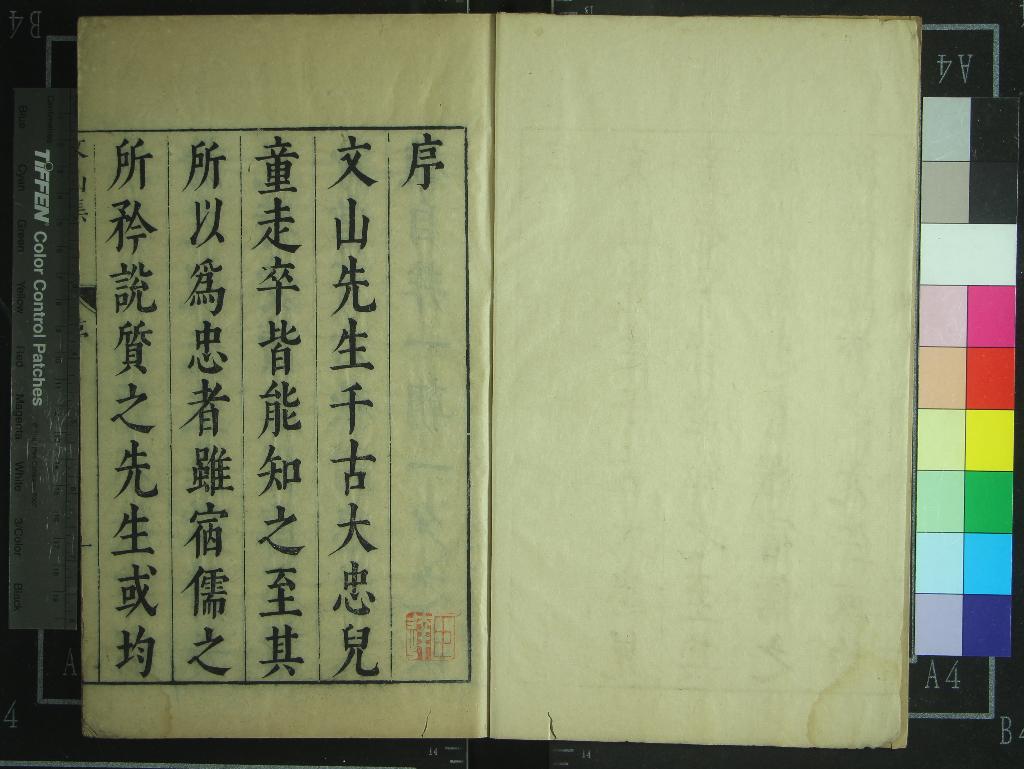 序
文山先生千古大忠兒
童走卒皆能知之至其
所以為忠者雖宿儒之
所矜說質之先生或均
TIFFEN Color Control Patches
Blue Cyan Green Yellow Red Magenta White 3/Color Black
A4
A4
B4